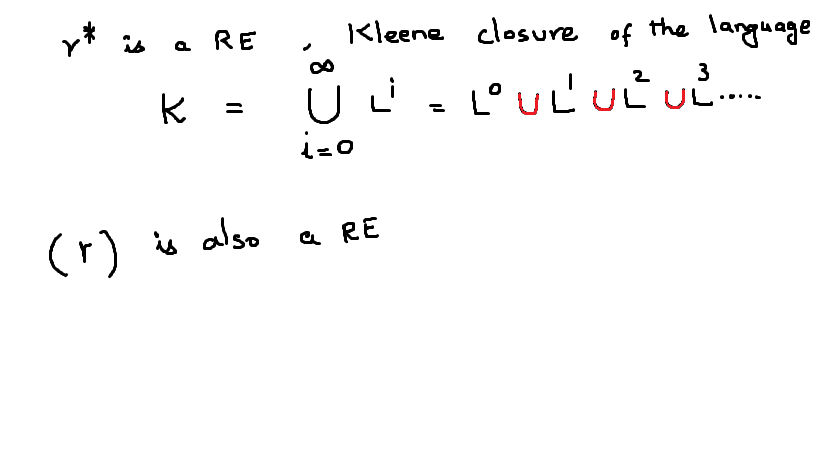 r* is a RE , Kleene closure of the language
K = ∞⋃i=0 Lⁱ = L⁰ ∪ L¹ ∪ L² ∪ L³.....
(r) is also a RE